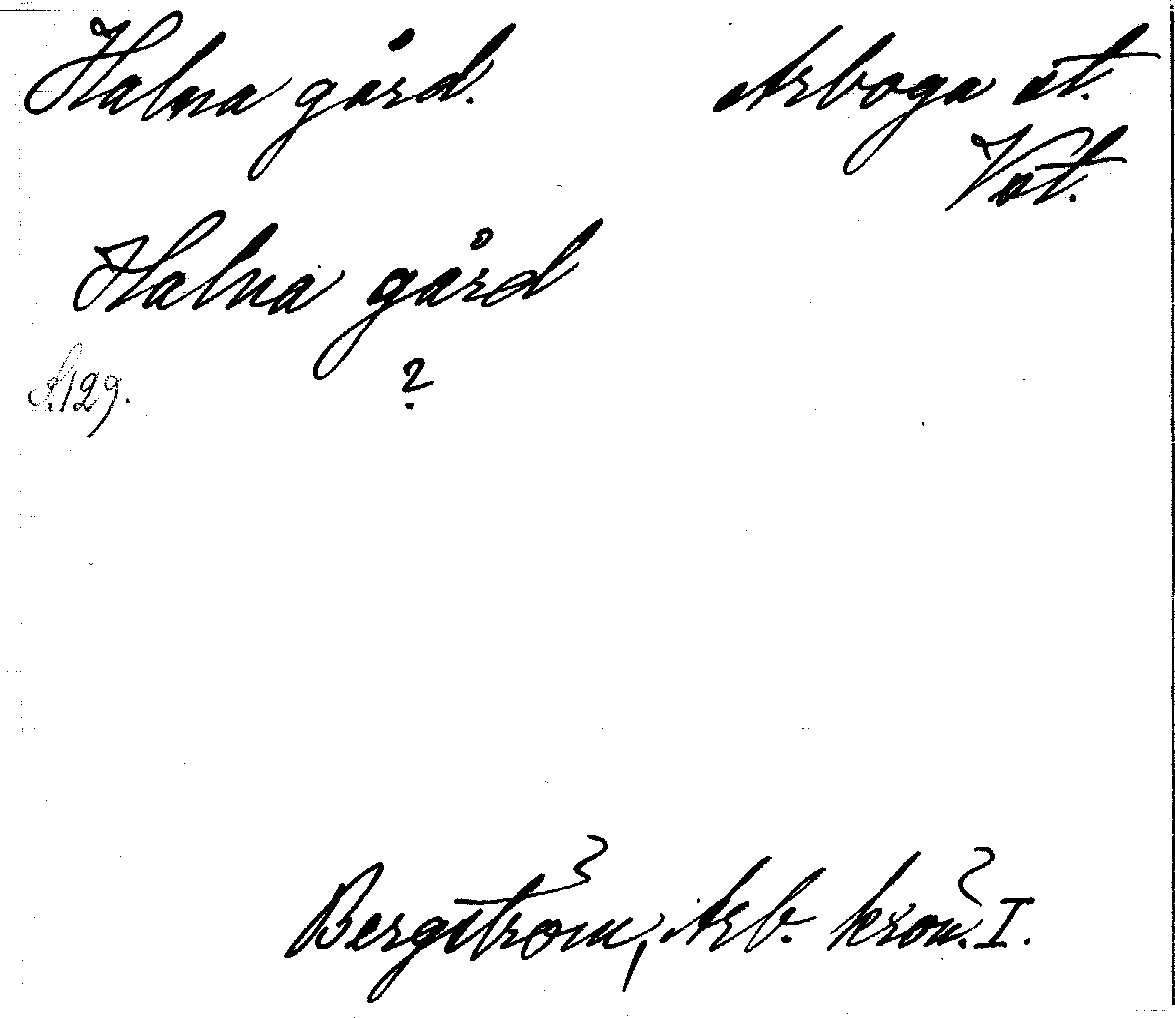 Halna gård. Arboga st.
Vst.
Halna gård
S. 129. ?
Bergström, Arb. krön. I.